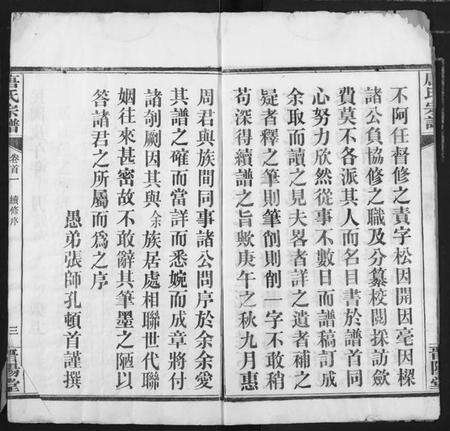 不阿任督修之責字松因開因亳因樑
諸公負協修之職及分纂校閱採訪歛
費莫不各派其人而名目書於譜首同
心努力欣然從事不數日而譜稿訂成
余取而讀之見夫畧者詳之遺者補之
疑者釋之筆則筆削則削一字不敢稍
苟深得續譜之旨歟庚午之秋九月惠
周君與族間同事諸公問序於余余愛
其譜之確而當詳而悉婉而成章將付
諸剞劂因其與余族居處相聯世代聯
姻往來甚密故不敢辭其筆墨之陋以
答諸君之所屬而為之序
愚弟張師孔頓首謹撰
唐氏宗譜
卷首一
續修序
三
晉陽堂